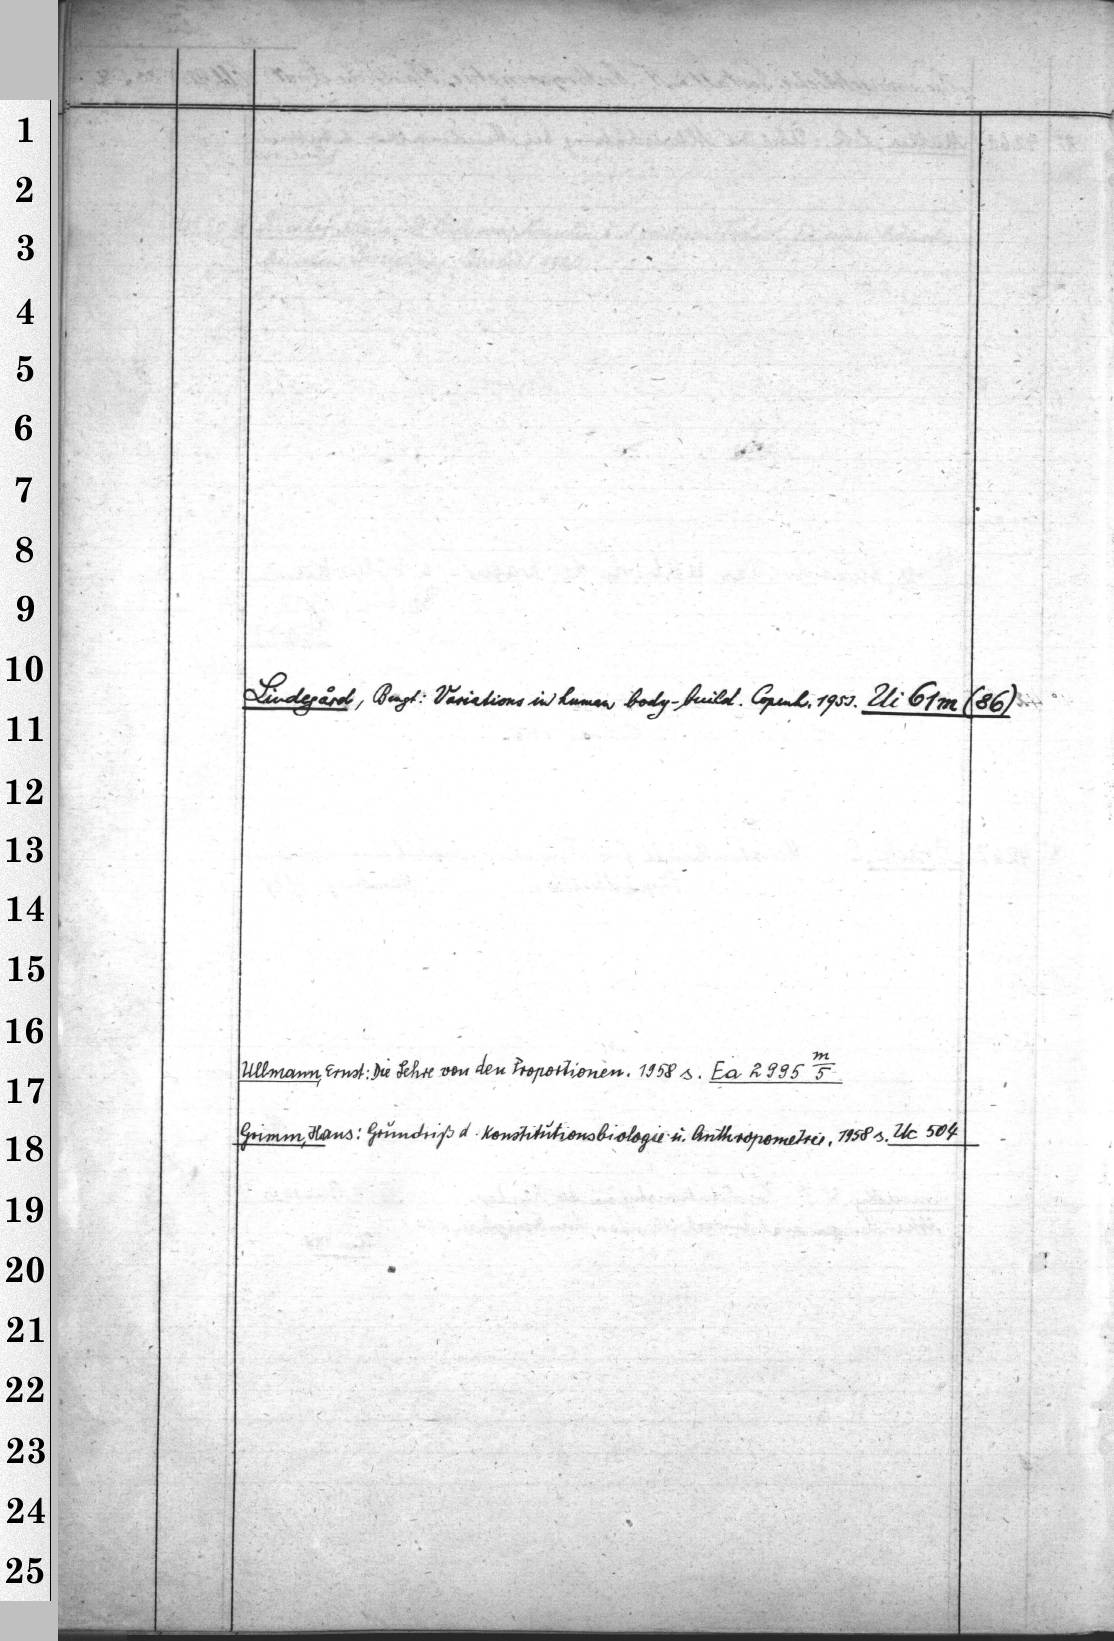 1
2
3
4
5
6
7
8
9
10
Lindegård, Bengt: Variations in human body-build. Copenh. 1953. Ui 61m (86)
11
12
13
14
15
16
Ullmann, Ernst: Die Lehre von den Proportionen. 1958 s. Ea 2995 m/5
17
Grimm, Hans: Grundriß d. Konstitutionsbiologie u. Anthropometrie. 1958 s. Uc 504
18
19
20
21
22
23
24
25